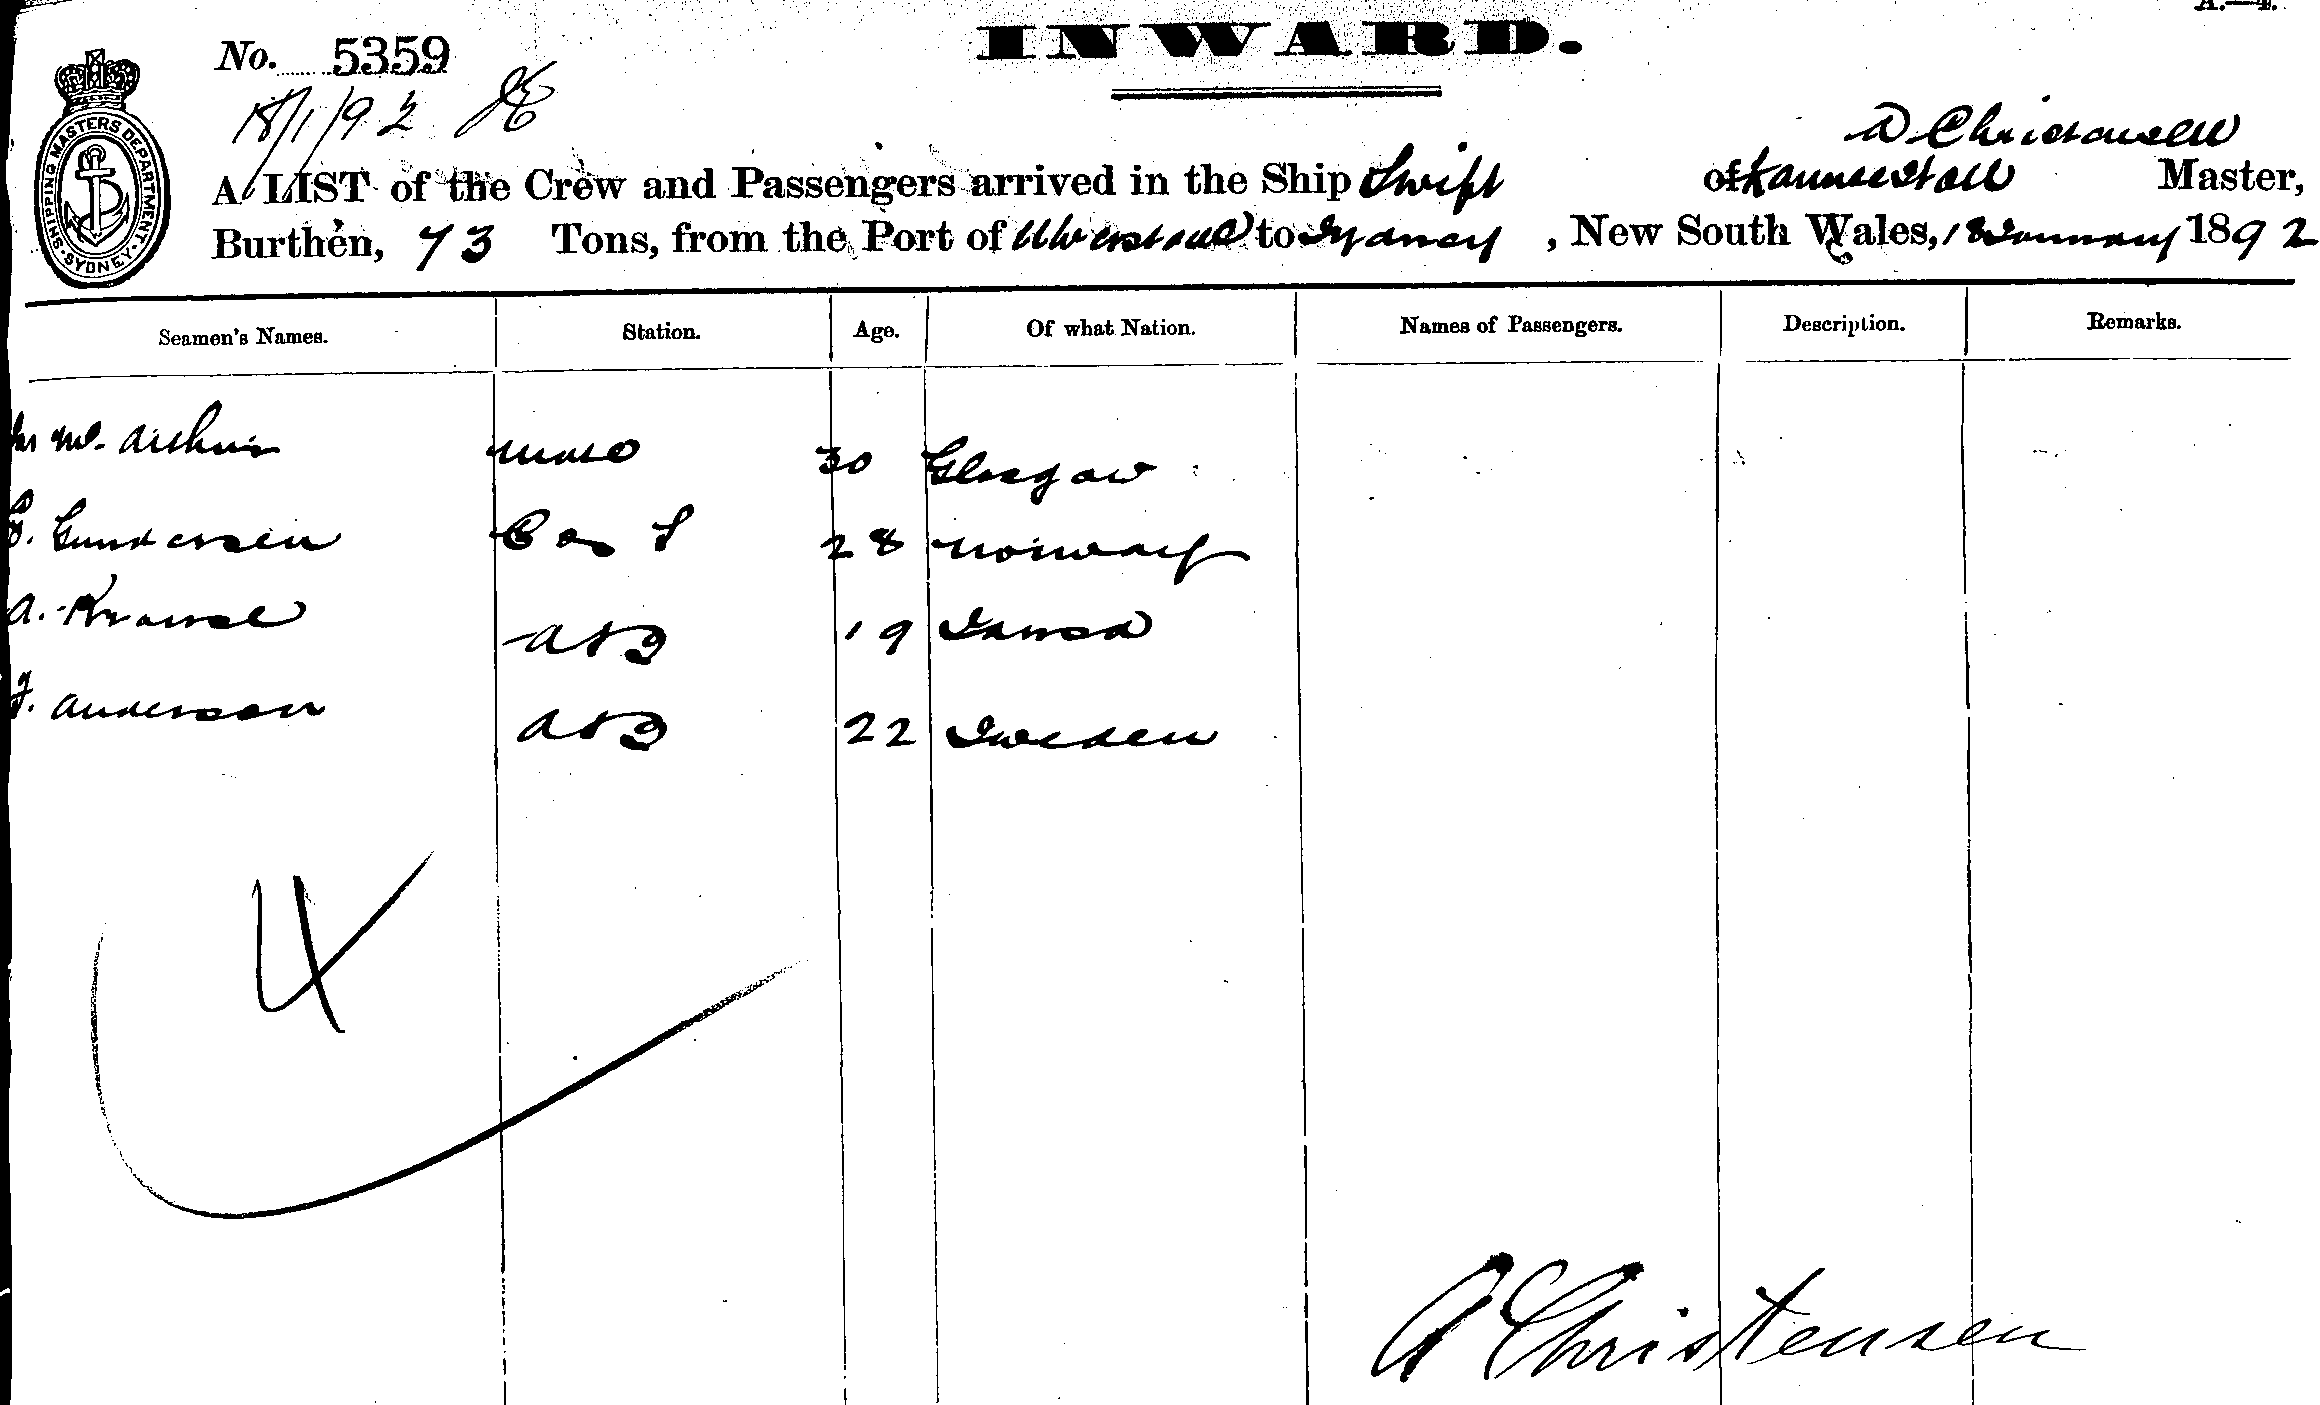 A.—4.
INWARD.
No. 5359
18/1/92
SHIPPING MASTERS DEPARTMENT SYDNEY
A Christensen
A LIST of the Crew and Passengers arrived in the Ship Swift of Launceston Master,
Burthen, 73 Tons, from the Port of Ulverstone to Sydney, New South Wales, 18 January 1892
Seamen's Names. Station. Age. Of what Nation. Names of Passengers. Description. Remarks.
McArthur Mate 30 Glasgow
Gundersen Coo S 28 Norway
A. Krause A B 19
F. Anderson A B 22 Sweden
4
A Christensen